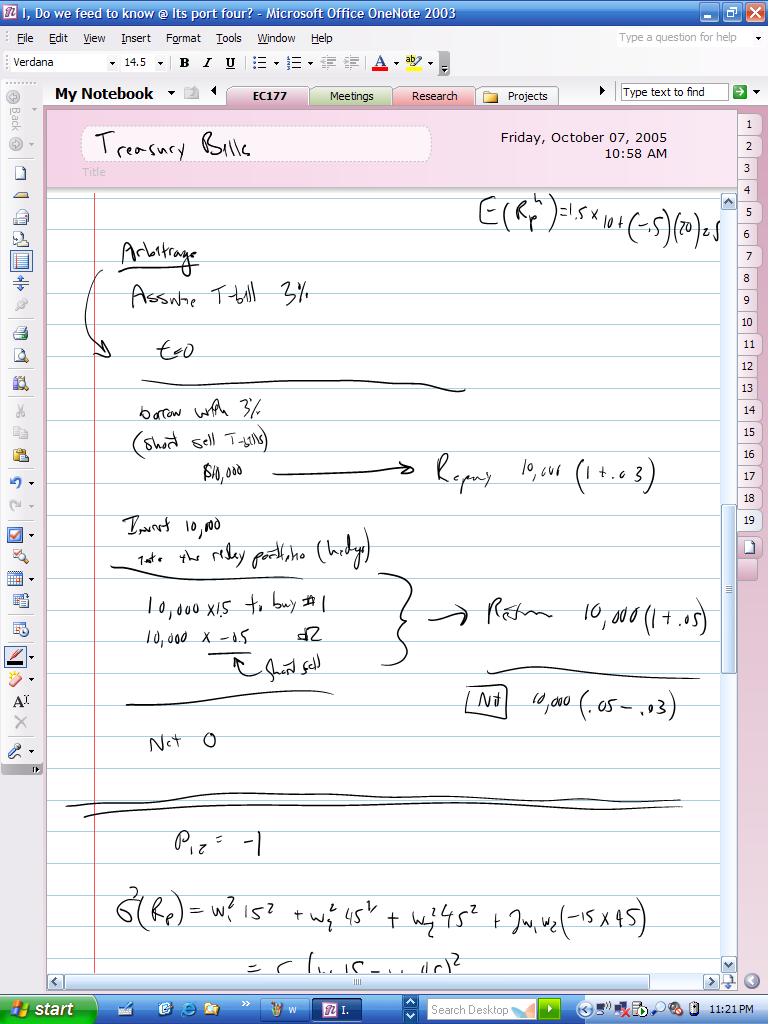 I, Do we feed to know @ Its port four? - Microsoft Office OneNote 2003
File Edit View Insert Format Tools Window Help Type a question for help
Verdana 14.5 B I U A ab
My Notebook EC177 Meetings Research Projects Type text to find
Back
Treasury Bills
Title
Friday, October 07, 2005
10:58 AM
1
2
3
4
5
6
7
8
9
10
11
12
13
14
15
16
17
18
19
E(Rpʰ)=1.5×10+(-.5)(20)=.5
Arbitrage
Assume T-bill 3%
t=0
borrow with 3%
(short sell T-bills)
$10,000 → Repay 10,000 (1+.03)
Invest 10,000
into the risky portfolio (hedge)
10,000 ×1.5 to buy #1
10,000 × -0.5 #2
short sell
→ Return 10,000(1+.05)
Net 10,000 (.05-.03)
Net 0
ρ₁₂ = -1
σ²(Rp) = w₁² 15² + w₂² 45² + w₂² 45² + 2w₁w₂(-15×45)
start w I. Search Desktop 11:21 PM